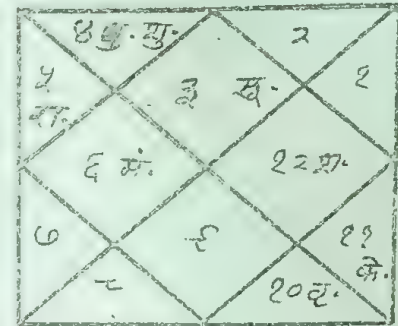 ४ बु. शु. २
५ ३ सू. १
रा.
६ मं. १२ श.
७ ९ ११
के.
८ १० वृ.